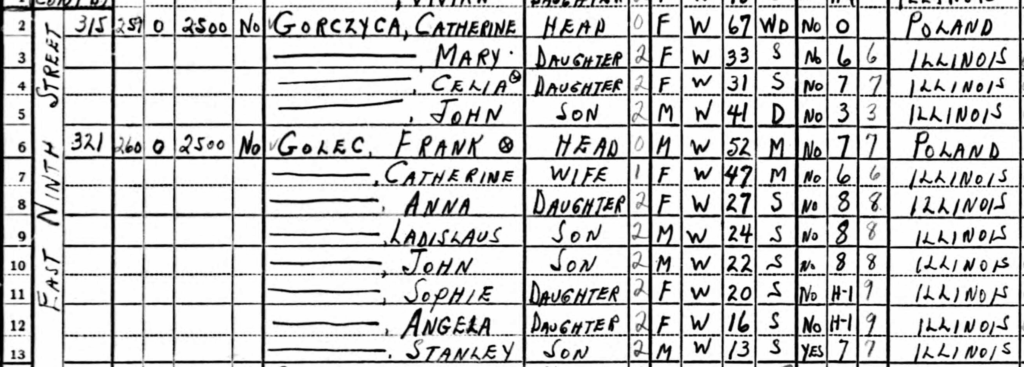 EAST NINTH STREET
2 315 259 0 2500 No GORCZYCA, CATHERINE HEAD 0 F W 67 WD No 0 POLAND
3 ——— . MARY . DAUGHTER 2 F W 33 S No 6 6 ILLINOIS
4 ——— . CELIA ⊗ DAUGHTER 2 F W 31 S No 7 7 ILLINOIS
5 ——— . JOHN SON 2 M W 41 D No 3 3 ILLINOIS
6 321 260 0 2500 No GOLEC, FRANK ⊗ HEAD 0 M W 52 M No 7 7 POLAND
7 ——— . CATHERINE WIFE 1 F W 47 M No 6 6 ILLINOIS
8 ——— . ANNA DAUGHTER 2 F W 27 S No 8 8 ILLINOIS
9 ——— . LADISLAUS SON 2 M W 24 S No 8 8 ILLINOIS
10 ——— , JOHN SON 2 M W 22 S No 8 8 ILLINOIS
11 ——— , SOPHIE DAUGHTER 2 F W 20 S No H-1 9 ILLINOIS
12 ——— , ANGELA DAUGHTER 2 F W 16 S No H-1 9 ILLINOIS
13 ——— . STANLEY SON 2 M W 13 S YES 7 7 ILLINOIS